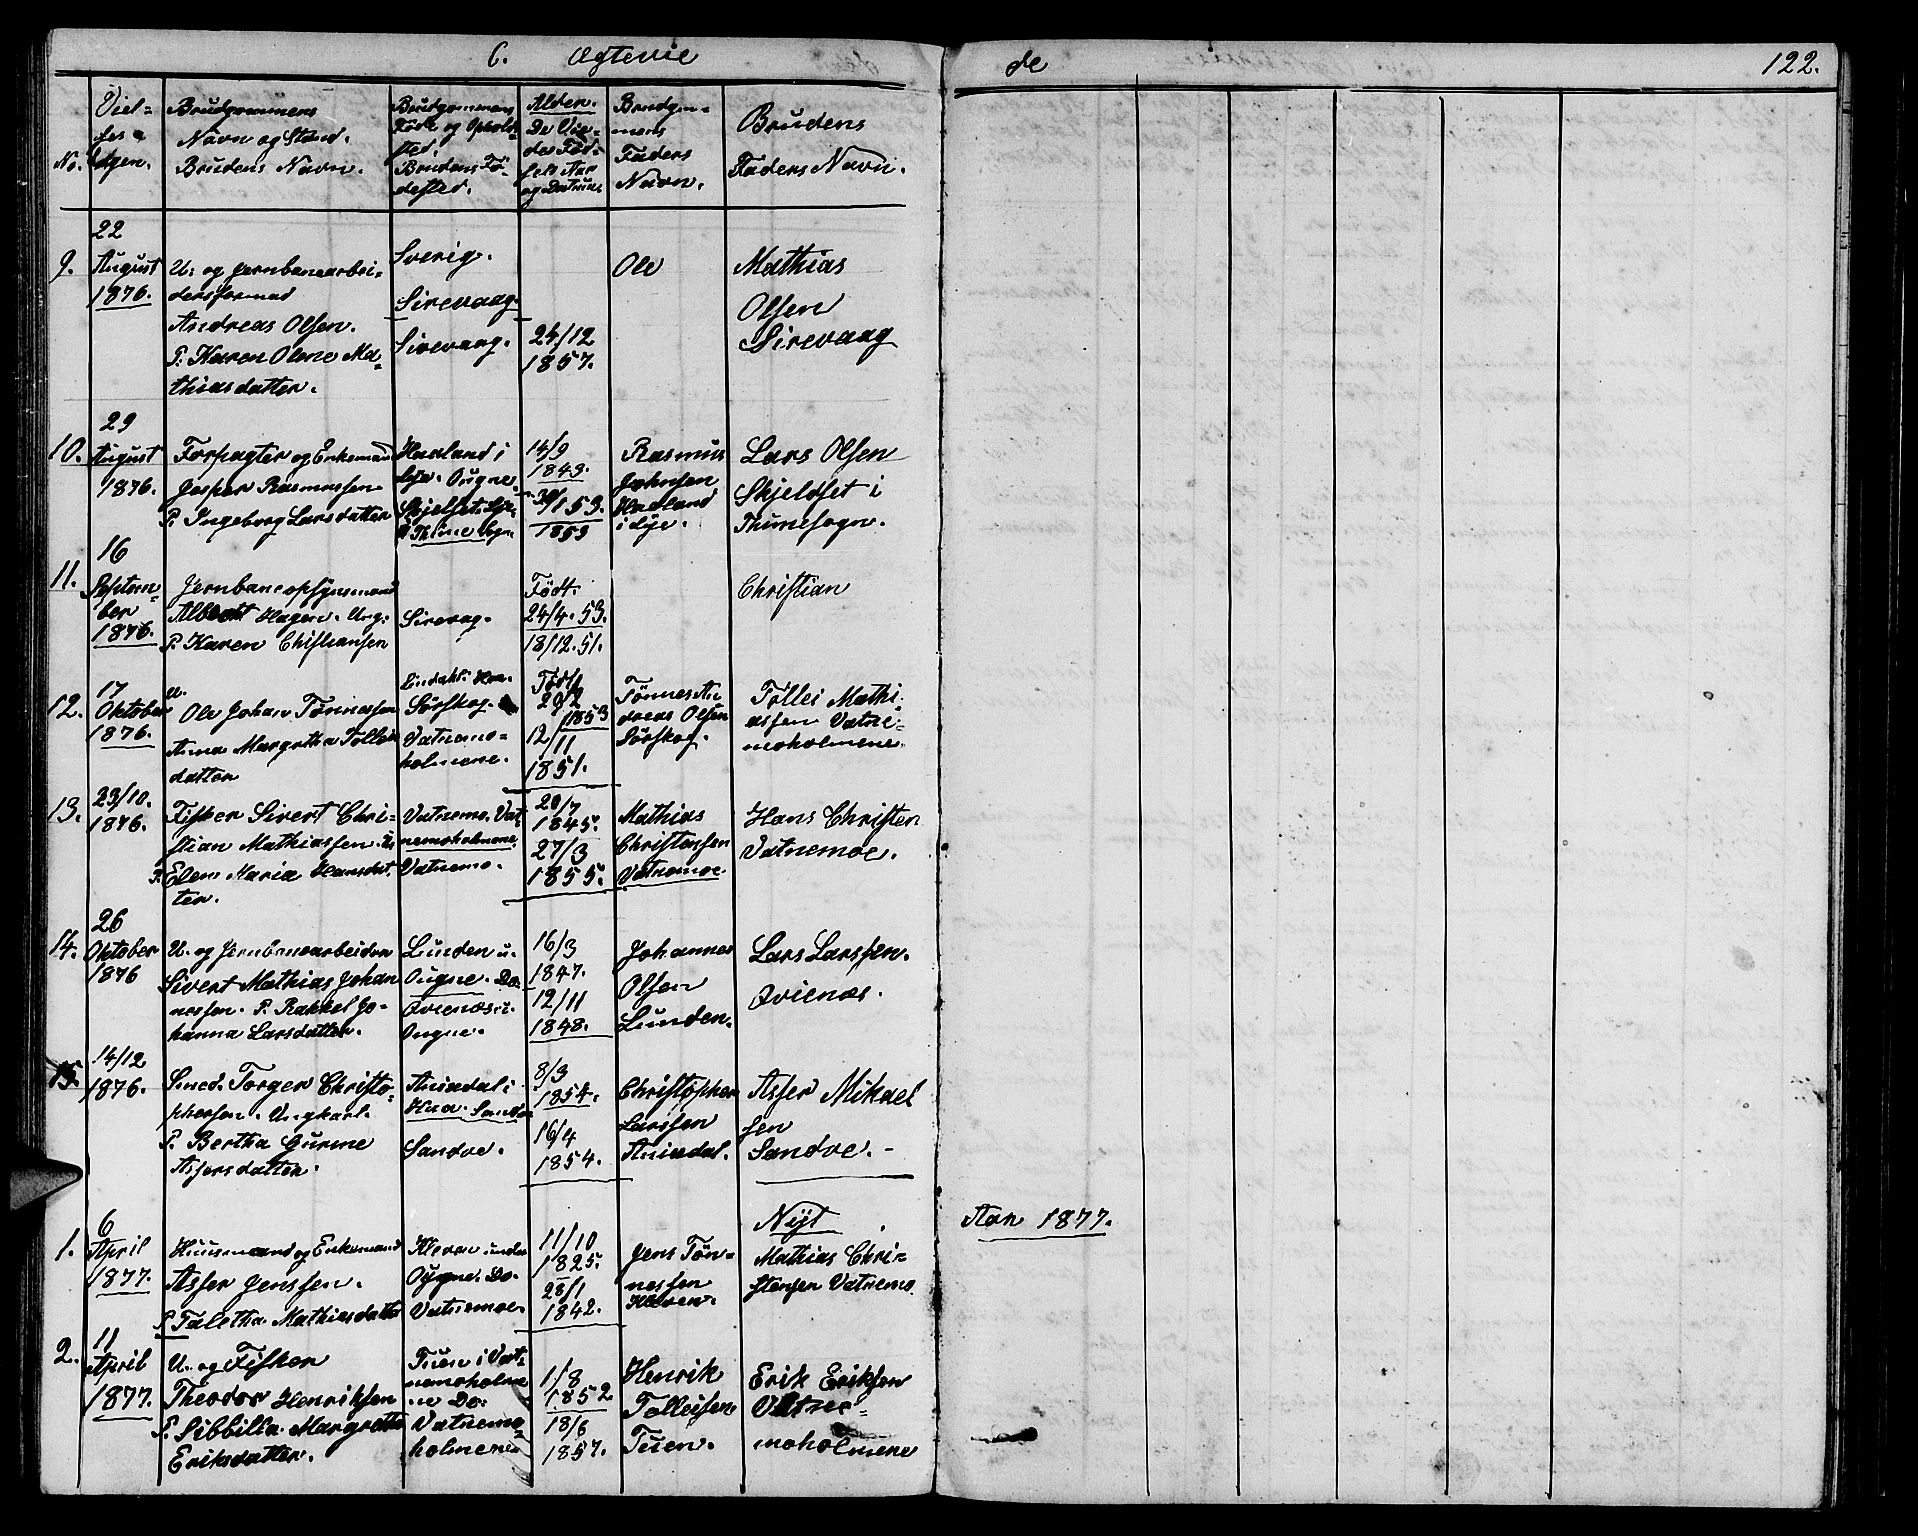 C. Ægtevie
de
122.
No.
Viel=
ses=
dgen.
Brudgommens
Navn og Stand.
Brudens Navn.
Brudgommens
Føde og Opholds
sted.
Brudens Fø-
dested.
Alder.
De Vie-
des Fød-
sels Aar
og Datum.
Brudgm-
mens
Faders
Navn.
Brudens
Faders Navn.
9.
22
August
1876.
U. og Jernbanearbei-
dersformad
Andreas Olsen.
P. Karen Olene Ma-
thiasdatter.
Sverig.
Sirevaag.
Sirevaag.
24/12
1857.
Ole
Mathias
Olsen
Sirevaag
10.
29
August
1876.
Forpagter og Enkemand
Jasper Rasmussen
P. Ingeborg Larsdatter
Haaland i
Lye. Ougne.
Skjelset. Lye
Thime Sogn
14/9
1849.
1853
Rasmus
Johnsen
Haaland
i Lye.
Lars Olsen
Skjelset i
Thimesogn.
11.
16
Septem=
ber
1876.
Jernbaneopsynsmand
Albert Hagen. Ung.
P. Karen Chistiansen
Sirevag.
Født.
24/4. 53.
18/12. 51.
Christian
12.
17
Oktober
1876.
U.
Ole Johan Tønnessen
Anna Margretha Tolleis
datter
Sørskog.
Vatnemo-
holmene.
Født
29/2
1853
12/11
1851.
Tønnes An
dreas Olsen
Sørskog.
Tollei Mathi-
assen Vatne-
moholmene.
13.
23/10.
1876.
Fisker Sivert Chri-
stian Mathiassen. U
P. Elen Maria Hansdat
ter.
Vatnemo. Vat
nemoholmene.
Vatnemo.
20/7
1845.
27/3
1855.
Mathias
Christensen
Vatnemoe.
Hans Christen
Vatnemoe.
14.
26
Oktober
1876
U. og Jernbanearbeider
Sivert Mathias Johan
nessen. P. Rakkel Jo-
hanna Larsdatter.
Lunden u.
Ougne. Do.
Qvienæs u.
Ougne.
16/3
1847.
12/11
1848.
Johannes
Olsen
Lunden.
Lars Larssen.
Qvienæs.
15.
14/12
1876.
Smed. Torger Christo-
phersen. Ungkarl.
P. Bertha Gurine
Asfersdatter.
Aniadal i
Haa. Sandve
Sandve.
8/3
1854.
16/4
1854.
Christopher
Larssen
Aniadal.
Asfer Mikael
sen
Sandve. -
Nyt
Aar 1877.
1.
6
April
1877.
Huusmand og Enkemand
Asfer Jenssen.
P. Taletha Mathiasdatter
Kleven under
Ogne. Do.
Vatnemoe.
11/10
1825.
28/1
1842.
Jens Tøn-
nessen
Kleven.
Mathias Chri-
stensen Vatnemo.
2.
11
April
1877.
U. og Fisker
Theodor Henriksen
P. Sibbilla Margrethe
Eriksdatter.
Tuen i Vat-
nemoholme
ne Do.
Vatnemo-
holmene
1/8
1852
18/6
1857.
Henrik
Tolleisen
Tuen.
Erik Eriksen
Vatne-
moholmene